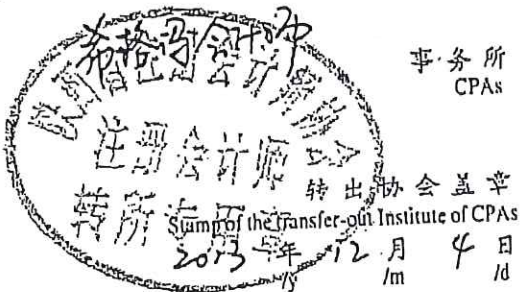 希格玛会计师
事务所
CPAs
注册会计师
转所专用章
转出协会盖章
Stamp of the transfer-out Institute of CPAs
2013年12月4日
/y /m /d